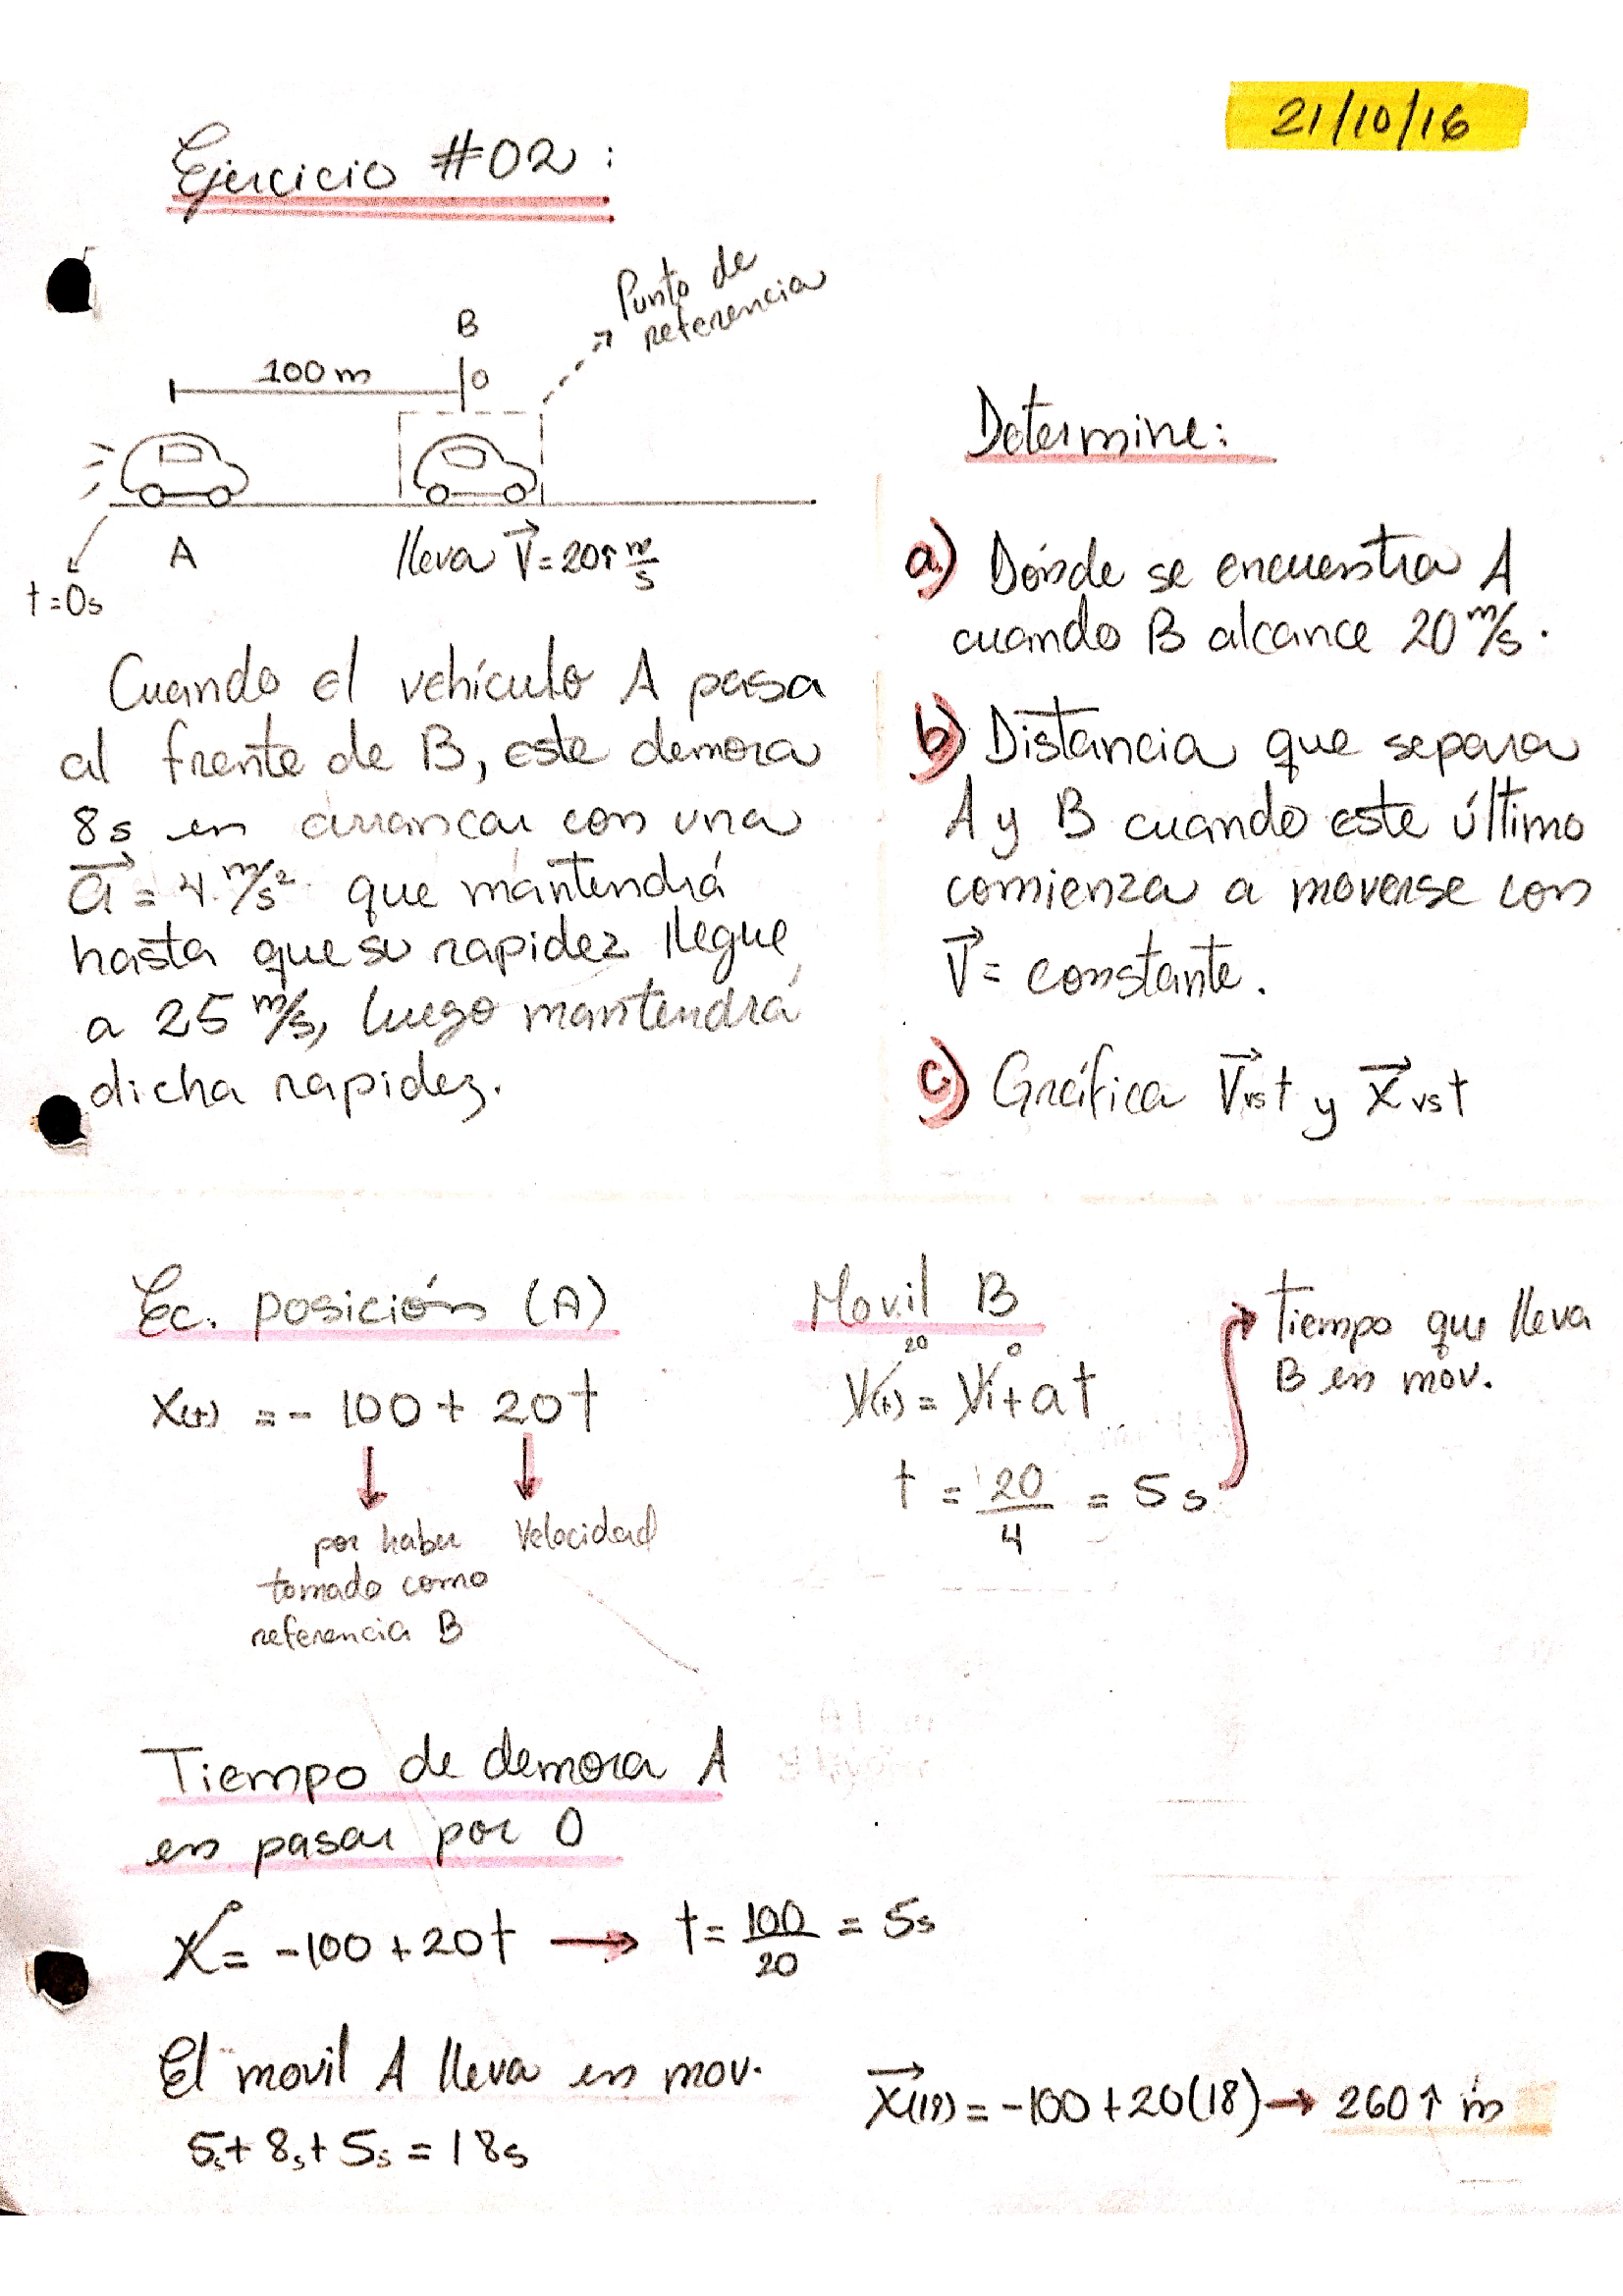 21/10/16
Ejercicio #02:
Punto de
referencia
B
100 m
0
A
lleva V⃗ = 20 î m/s
t = 0s
Cuando el vehículo A pasa
al frente de B, este demora
8s en arrancar con una
a⃗ = 4 m/s² que mantendrá
hasta que su rapidez llegue
a 25 m/s, luego mantendrá
dicha rapidez.
Determine:
a) Dónde se encuentra A
cuando B alcance 20 m/s.
b) Distancia que separa
A y B cuando este último
comienza a moverse con
V⃗ = constante.
c) Gráfica V⃗ vs t y X⃗ vs t
Ec. posición (A)
X(t) = - 100 + 20t
por haber
tomado como
referencia B
Velocidad
Movil B
20 0
V(t) = Vi + at
t = 20/4 = 5s
Tiempo que lleva
B en mov.
Tiempo de demora A
en pasar por O
0
X = -100 + 20t → t = 100/20 = 5s
El movil A lleva en mov.
5s + 8s + 5s = 18s
X⃗(18) = -100 + 20(18) → 260 î m